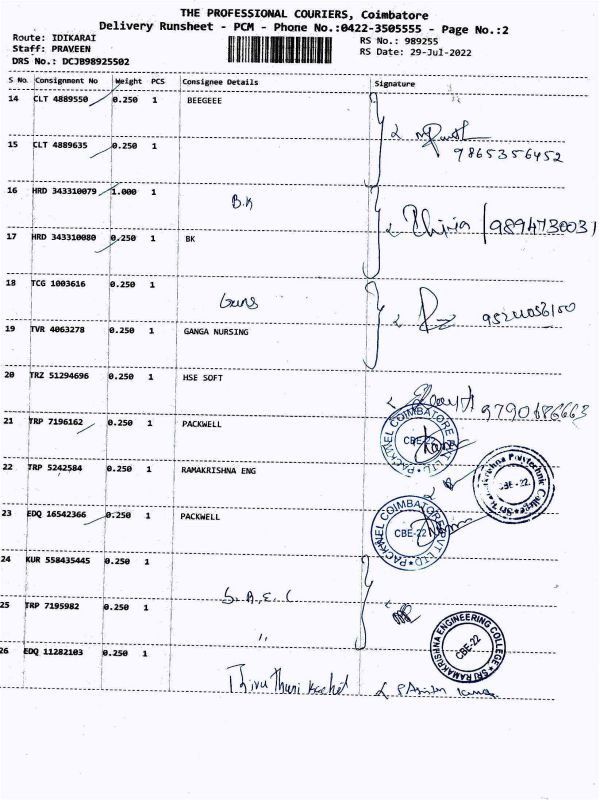 THE PROFESSIONAL COURIERS, Coimbatore
Delivery Runsheet - PCM - Phone No.:0422-3505555 - Page No.:2
Route: IDIKARAI RS No.: 989255
Staff: PRAVEEN RS Date: 29-Jul-2022
DRS No.: DCJB98925502
S No. Consignment No Weight PCS Consignee Details Signature
14 CLT 4889550 0.250 1 BEEGEEE
15 CLT 4889635 0.250 1
9865356452
16 HRD 343310079 1.000 1 B.K
9894730031
17 HRD 343310080 0.250 1 BK
18 TCG 1003616 0.250 1
19 TVR 4063278 0.250 1 GANGA NURSING
20 TRZ 51294696 0.250 1 HSE SOFT
9790686663
21 TRP 7196162 0.250 1 PACKWELL
PACKWEL COIMBATORE PVT LTD CBE-22
22 TRP 5242584 0.250 1 RAMAKRISHNA ENG
Polytechnic College CBE-22
23 EDQ 16542366 0.250 1 PACKWELL
PACKWEL COIMBATORE PVT LTD CBE-22
24 KUR 558435445 0.250 1
25 TRP 7195982 0.250 1 "
SRI RAMAKRISHNA ENGINEERING COLLEGE CBE-22
26 EDQ 11282103 0.250 1